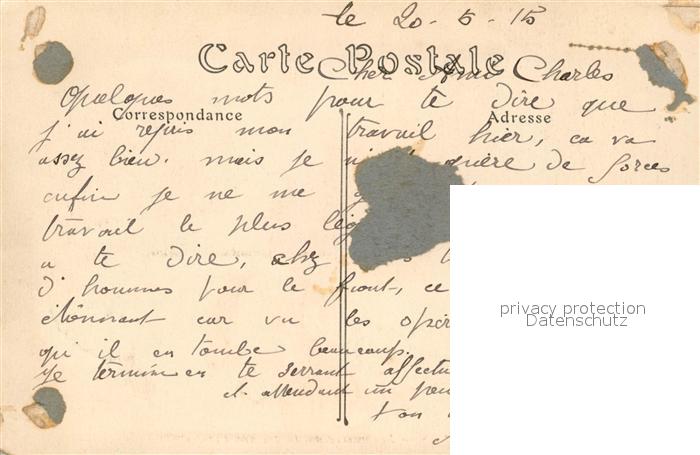 le 20-5-15
Carte Postale
Cher Ami Charles
Quelques mots pour te dire que
Correspondance
Adresse
j'ai repris mon travail hier, ca va
assez bien. mais je guère de forces
enfin je ne me
travail le plus
a te dire, chez
d'hommes pour le front, ce
étonnant car vu les opér
qu'il en tombe beaucoup.
Je termine en te serrant affectu
et attendant un peu
ton
privacy protection
Datenschutz